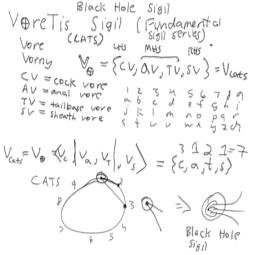 Black Hole Sigil
VoreTis Sigil (Fundamental
Sigil series)
(CATS)
Vore
Vorny
LHS MHS RHS
V = {CV, AV, TV, SV} = Vcats
CV = cock vore
AV = anal vore
TV = tailbase vore
SV = sheath vore
1 2 3 4 5 6 7 8 9
a b c d e f g h i
j k l m n o p q r
s t u v w x y z ch
3 1 2 1 = 7
Vcats = V = ⟨Vc | Va, Vt | Vs⟩ = {c, a, t, s}
CATS
9
8
7
6
5
4
3
⇒
Black Hole
Sigil